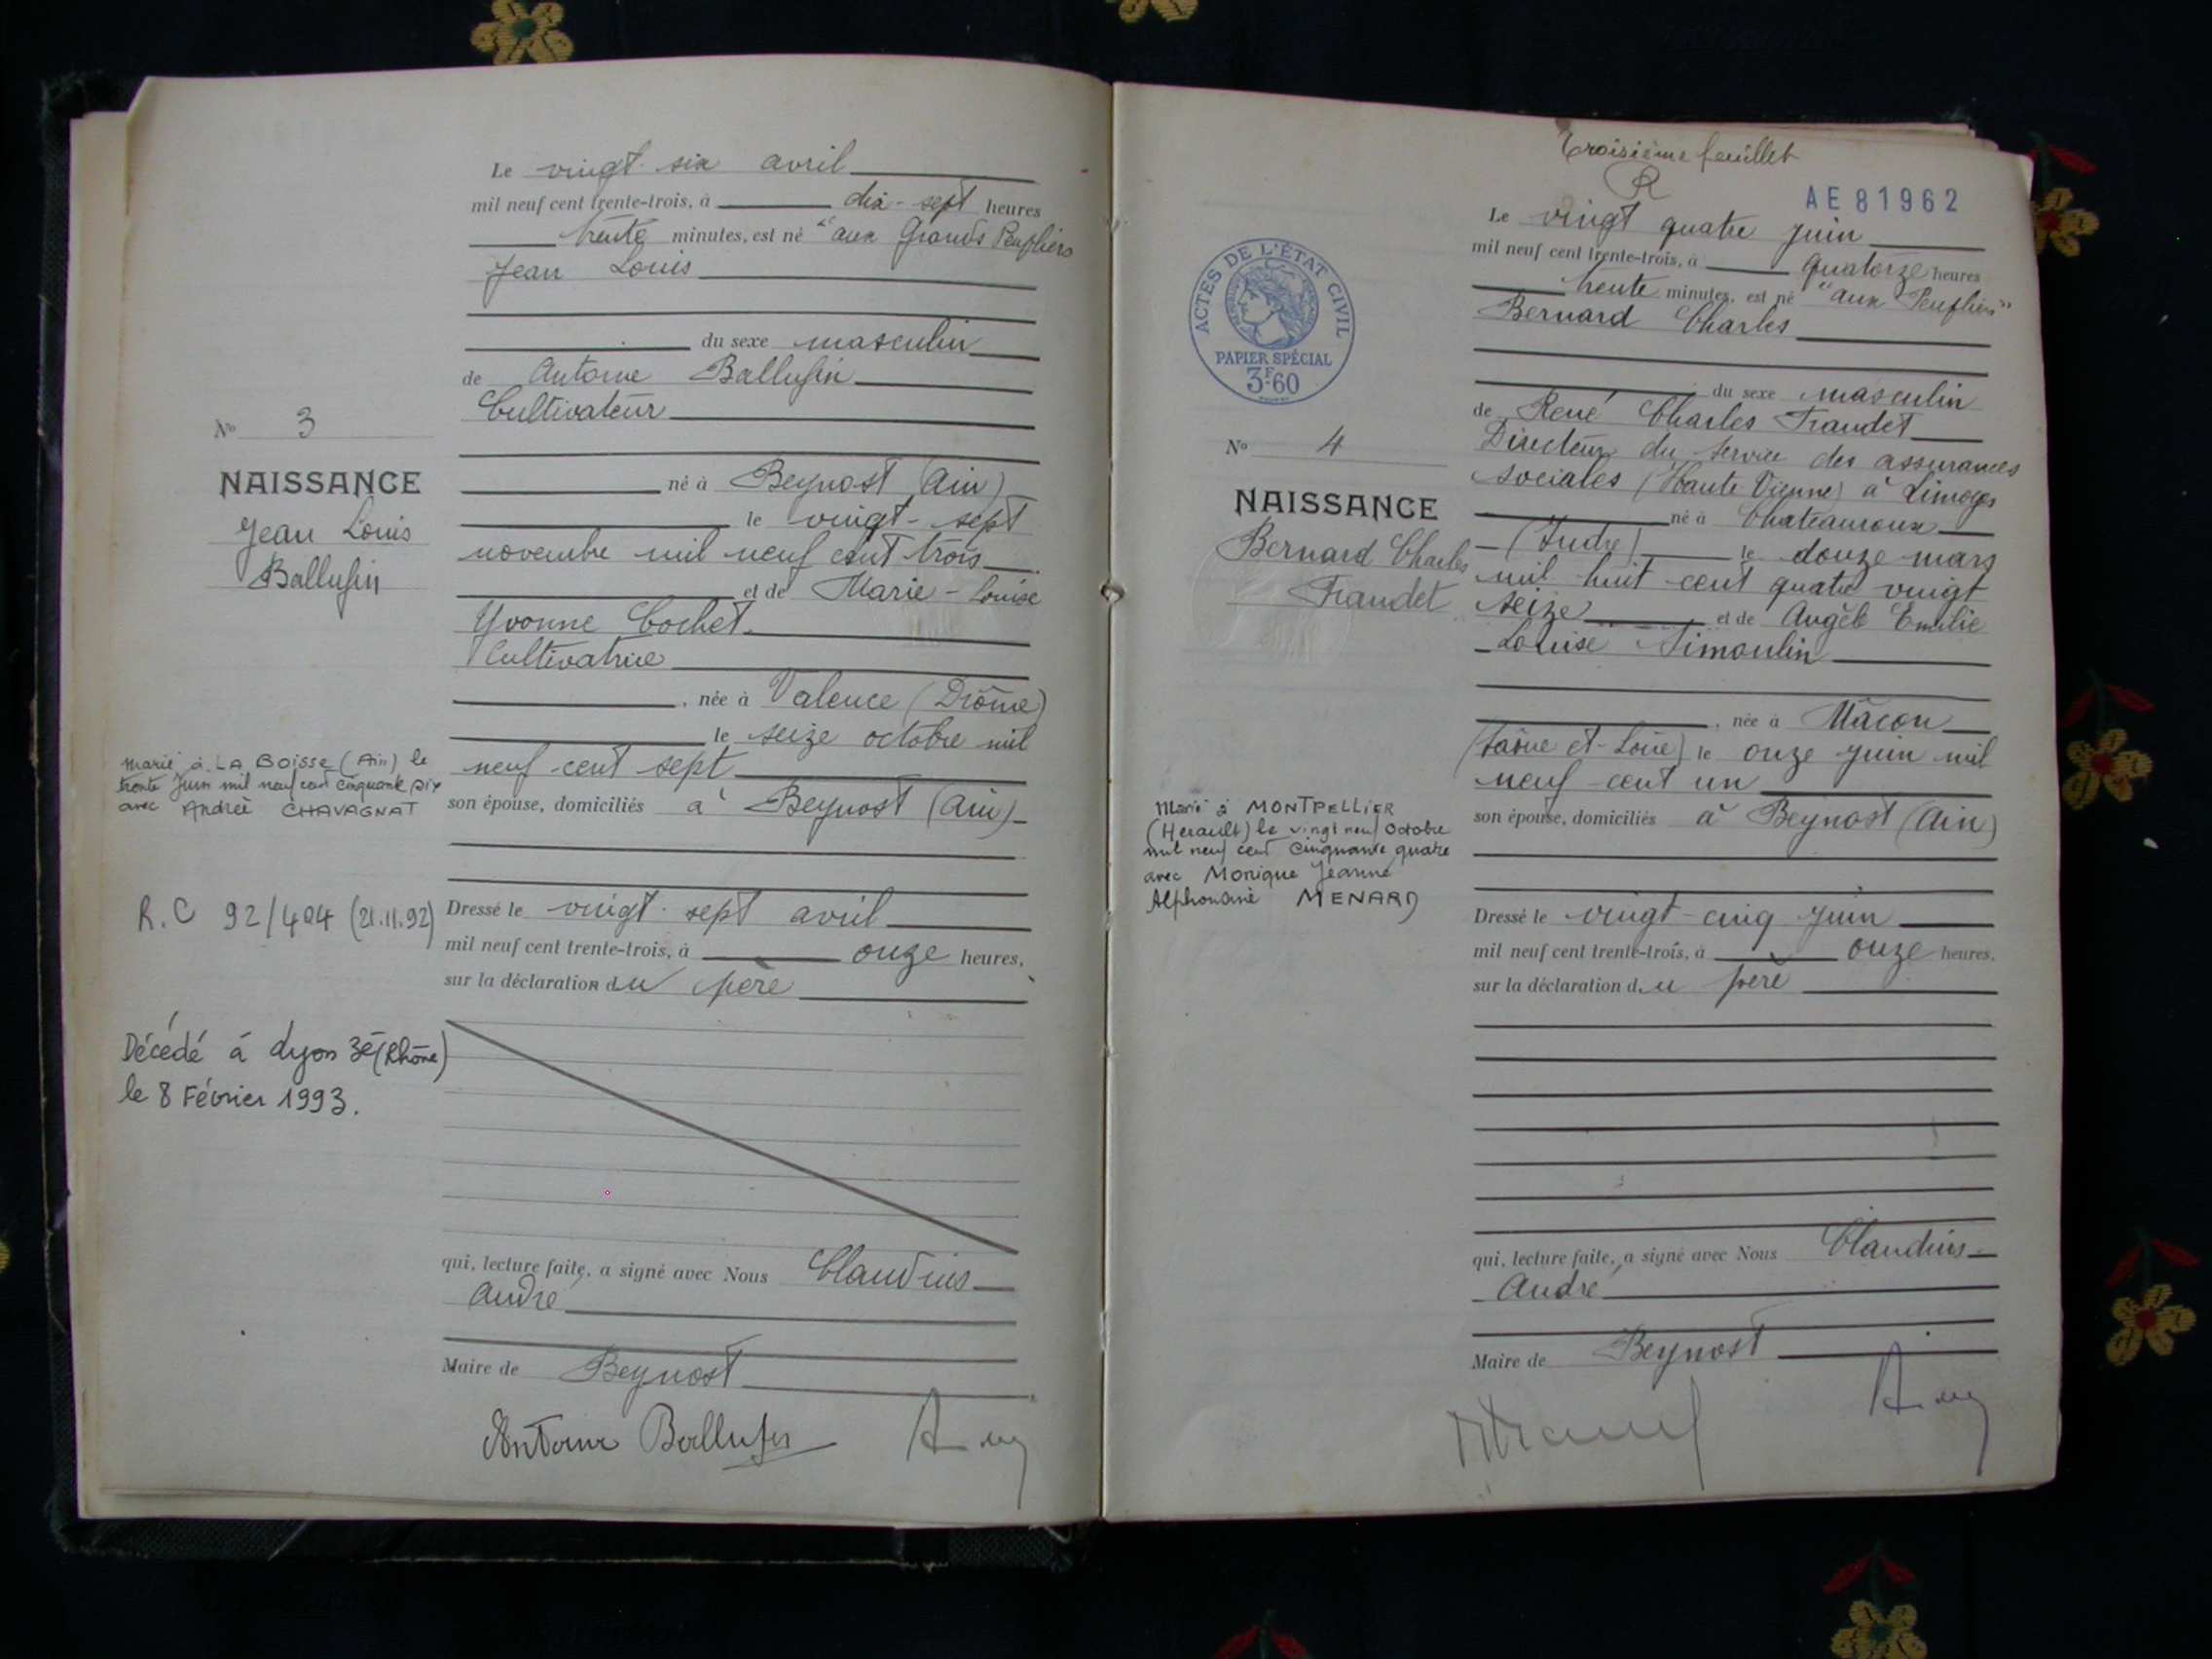 Le vingt-six avril
mil neuf cent trente-trois, à dix-sept heures
trente minutes, est né "aux Grands Peupliers
Jean Louis
du sexe masculin
de Antoine Ballufin
Cultivateur
né à Beynost (Ain)
le vingt-sept
novembre mil neuf cent trois
et de Marie-Louise
Yvonne Cochet
Cultivatrice
, née à Valence (Drôme)
le seize octobre mil
neuf cent sept
son épouse, domiciliés à Beynost (Ain)
Dressé le vingt-sept avril
mil neuf cent trente-trois, à onze heures,
sur la déclaration du père
qui, lecture faite, a signé avec Nous Claudius
André
Maire de Beynost
Antoine Ballufin
No 3
NAISSANCE
Jean Louis
Ballufin
Marié à LA BOISSE (Ain) le
trente Juin mil neuf cent cinquante six
avec Andrée CHAVAGNAT
R.C 92/404 (21.11.92)
Décédé à Lyon 3e (Rhône)
le 8 Février 1993.
Troisième feuillet
R
AE 81962
Le vingt quatre juin
mil neuf cent trente-trois, à quatorze heures
trente minutes, est né "aux Peupliers"
Bernard Charles
du sexe masculin
de René Charles Fraudet
Directeur du service des assurances
sociales (Haute Vienne) à Limoges
né à Chateauroux
(Indre) le douze mars
mil huit cent quatre vingt
seize et de Angèle Emilie
Louise Simoulin
, née à Mâcon
(Saône et-Loire) le onze juin mil
neuf cent un
son épouse, domiciliés à Beynost (Ain)
Dressé le vingt-cinq juin
mil neuf cent trente-trois, à onze heures,
sur la déclaration du père
qui, lecture faite, a signé avec Nous Claudius
André
Maire de Beynost
ACTES DE L'ÉTAT CIVIL
PAPIER SPÉCIAL
3F60
No 4
NAISSANCE
Bernard Charles
Fraudet
Marié à MONTPELLIER
(Herault) le vingt neuf Octobre
mil neuf cent cinquante quatre
avec Monique Jeanne
Alphonsine MENARD